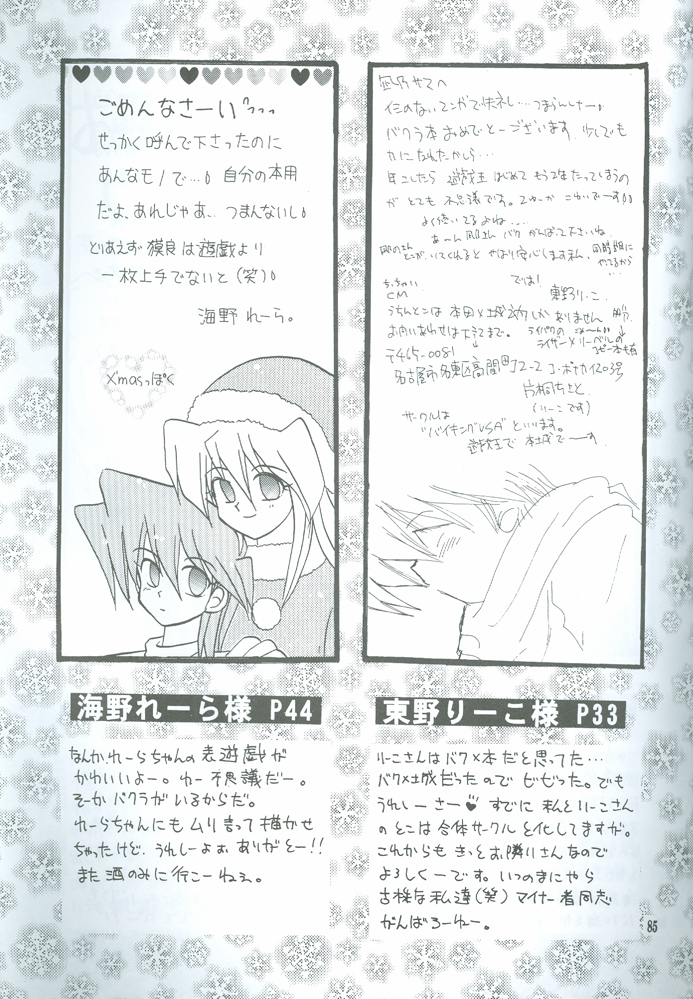 ごめんなさーい
せっかく呼んで下さったのに
あんなモノで…。自分の本用
だよ、あれじゃあ、つまんないし。
とりあえず獏良は遊戯より
一枚上手でないと(笑)。
海野れーら。
X'masっぽく
海野れーら様 P44
なんか、れーらちゃんの表遊戯が
かわいいよー。わー不思議だー。
そーかバクラがいるからだ。
れーらちゃんにもムリ言って描かせ
ちゃったけど、うれしーよぉ ありがとー!!
また酒のみに行こーねぇ。
バクラ本おめでとーございます 少しでも
力になれたかしら…
年こしたら 遊戯王 はじめて
が とても 不思議です。
よく続いてるよね…
では!
東野りーこ
CM
うちんとこは 本田×城之内しか ありません
お問いあわせは下記まで。
〒465-0081
名古屋市名東区高間町
片桐ちさと
(りーこです)
サークルは
"バイキングUSA" といいます。
遊戯王で 本城でーす
東野りーこ様 P33
りーこさんはバク×本だと思ってた…
バク×城だったのでビビった。でも
うれしーさー♥ すでに 私とりーこさん
のとこは合体サークルと化してますが。
これからも きっとお隣りさんなので
よろしくーです。いつのまにやら
古株な私達(笑)マイナー者同志
がんばろーねー。
85